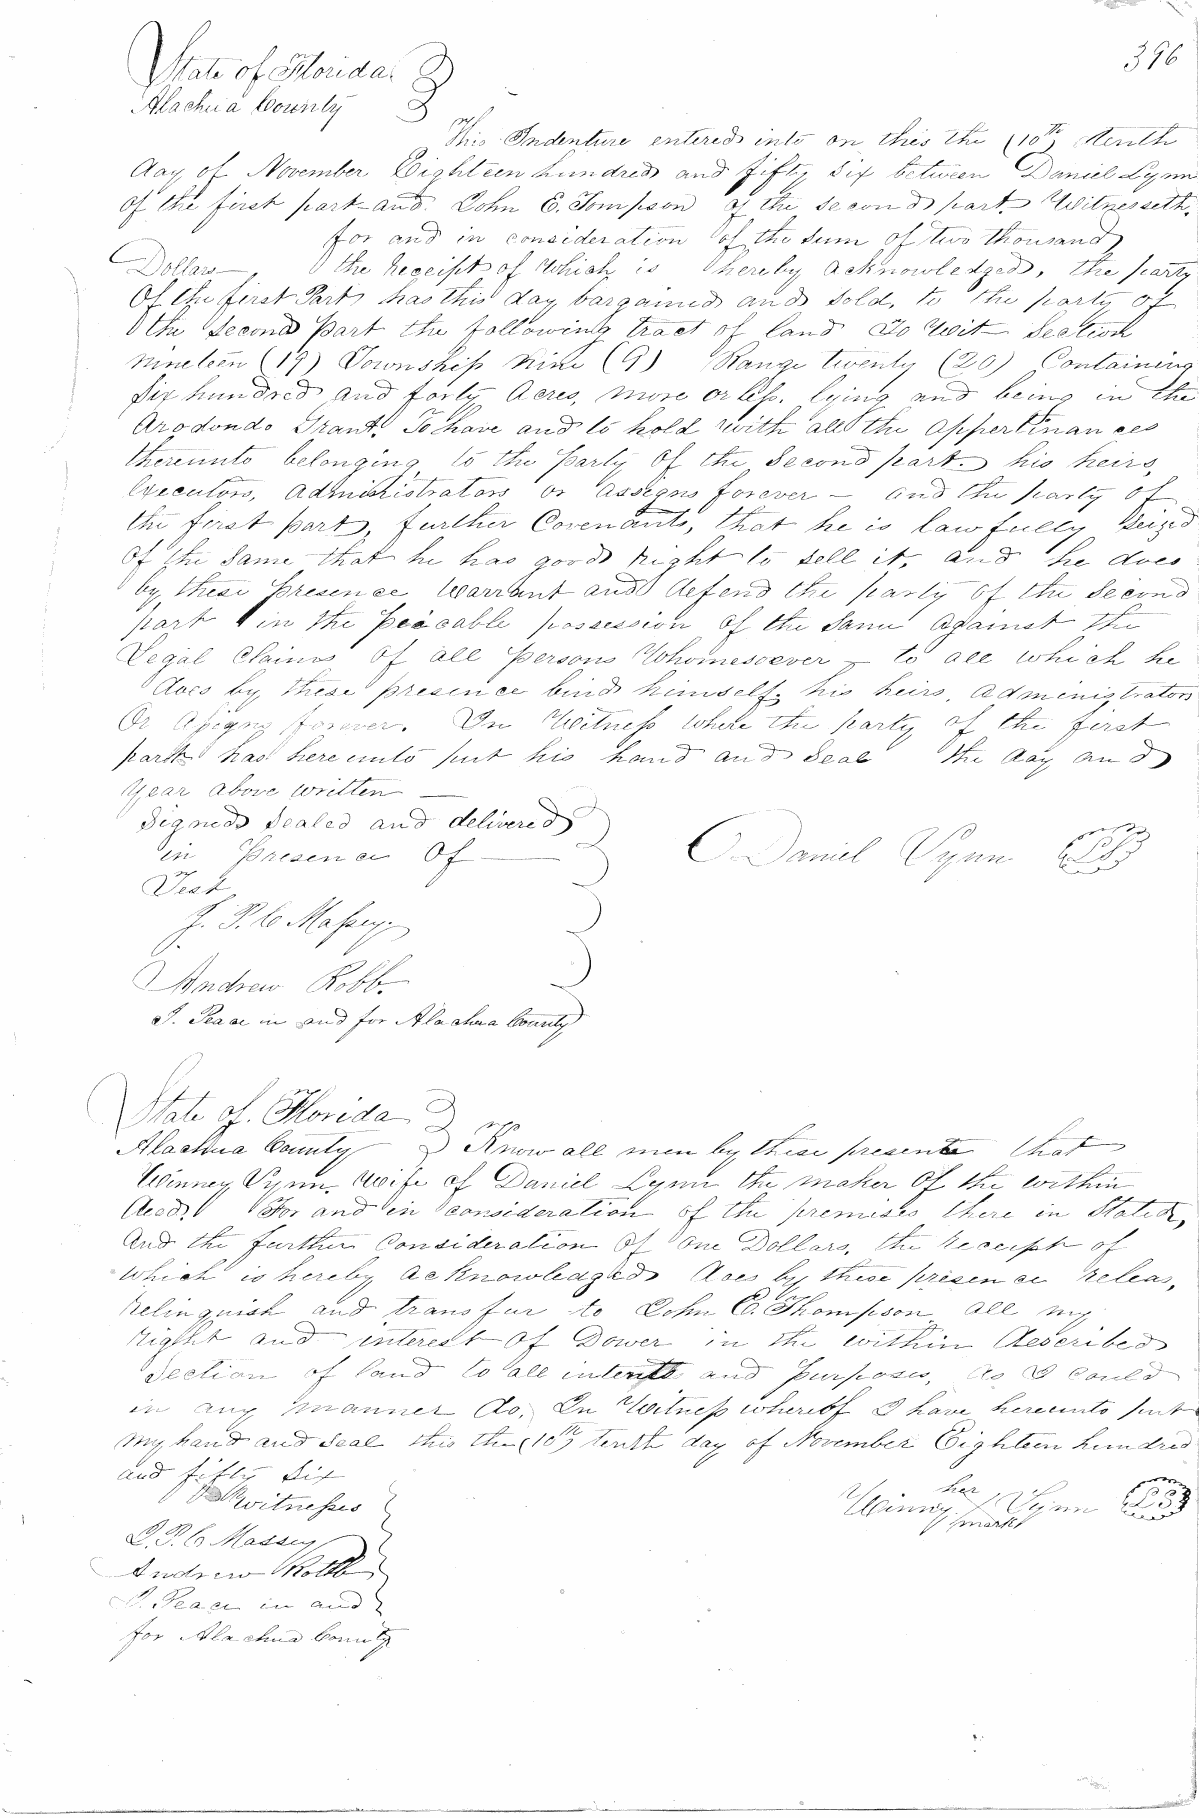 396
State of Florida
Alachua County
This Indenture entered into on this the (10th) tenth
day of November Eighteen hundred and fifty Six between Daniel Lynn
of the first part and John E. Tompson of the second part. Witnesseth,
for and in consideration of the Sum of two thousand
Dollars the Receipt of Which is hereby acknowledged, the party
Of the first Part has this day bargained and sold, to the party of
the Second part the following tract of land To Wit Section
nineteen (19) Township Nine (9) Range twenty (20) Containing
Six hundred and forty Acres, more or less, lying and being in the
Arodondo Grant. To have and to hold with all the appertinances
thereunto belonging to the Party Of the Second part. his heirs,
Executors, administrators or assigns forever — and the party of
the first part, further Covenants, that he is lawfully Seized
of the Same that he has good Right to Sell it, and he does
by these presence Warrant and defend the party of the Second
part in the peaceable possession of the Same against the
Legal Claims Of all persons Whomesoever — to all which he
does by these presence bind himself, his heirs, administrators
Or Assigns forever. In Witness where the party of the first
part has hereunto put his hand and Seal the day and
year above written —
Signed Sealed and delivered
in Presence Of — Daniel Lynn LS
Test
J. P. C Massey
Andrew Robb.
J. Peace in and for Alachua County
State of Florida
Alachua County Know all men by these presents that
Winney Lynn, wife of Daniel Lynn the maker Of the within
deed. For and in consideration of the premises there in Stated,
And the further Consideration Of One Dollars, the Receipt of
which is hereby acknowledged does by these presence releas,
Relinquish and transfur to John E. Thompson all my
Right and interest Of Dower in the within described
Section of land to all intents and purposes, as I could
in any manner do. In Witness whereof I have hereunto put
my hand and Seal this the (10th) tenth day of November Eighteen hundred
and fifty Six
witnesses
her
Winney X Lynn LS
mark
J. P. C Massey
Andrew Robb
J. Peace in and
for Alachua County